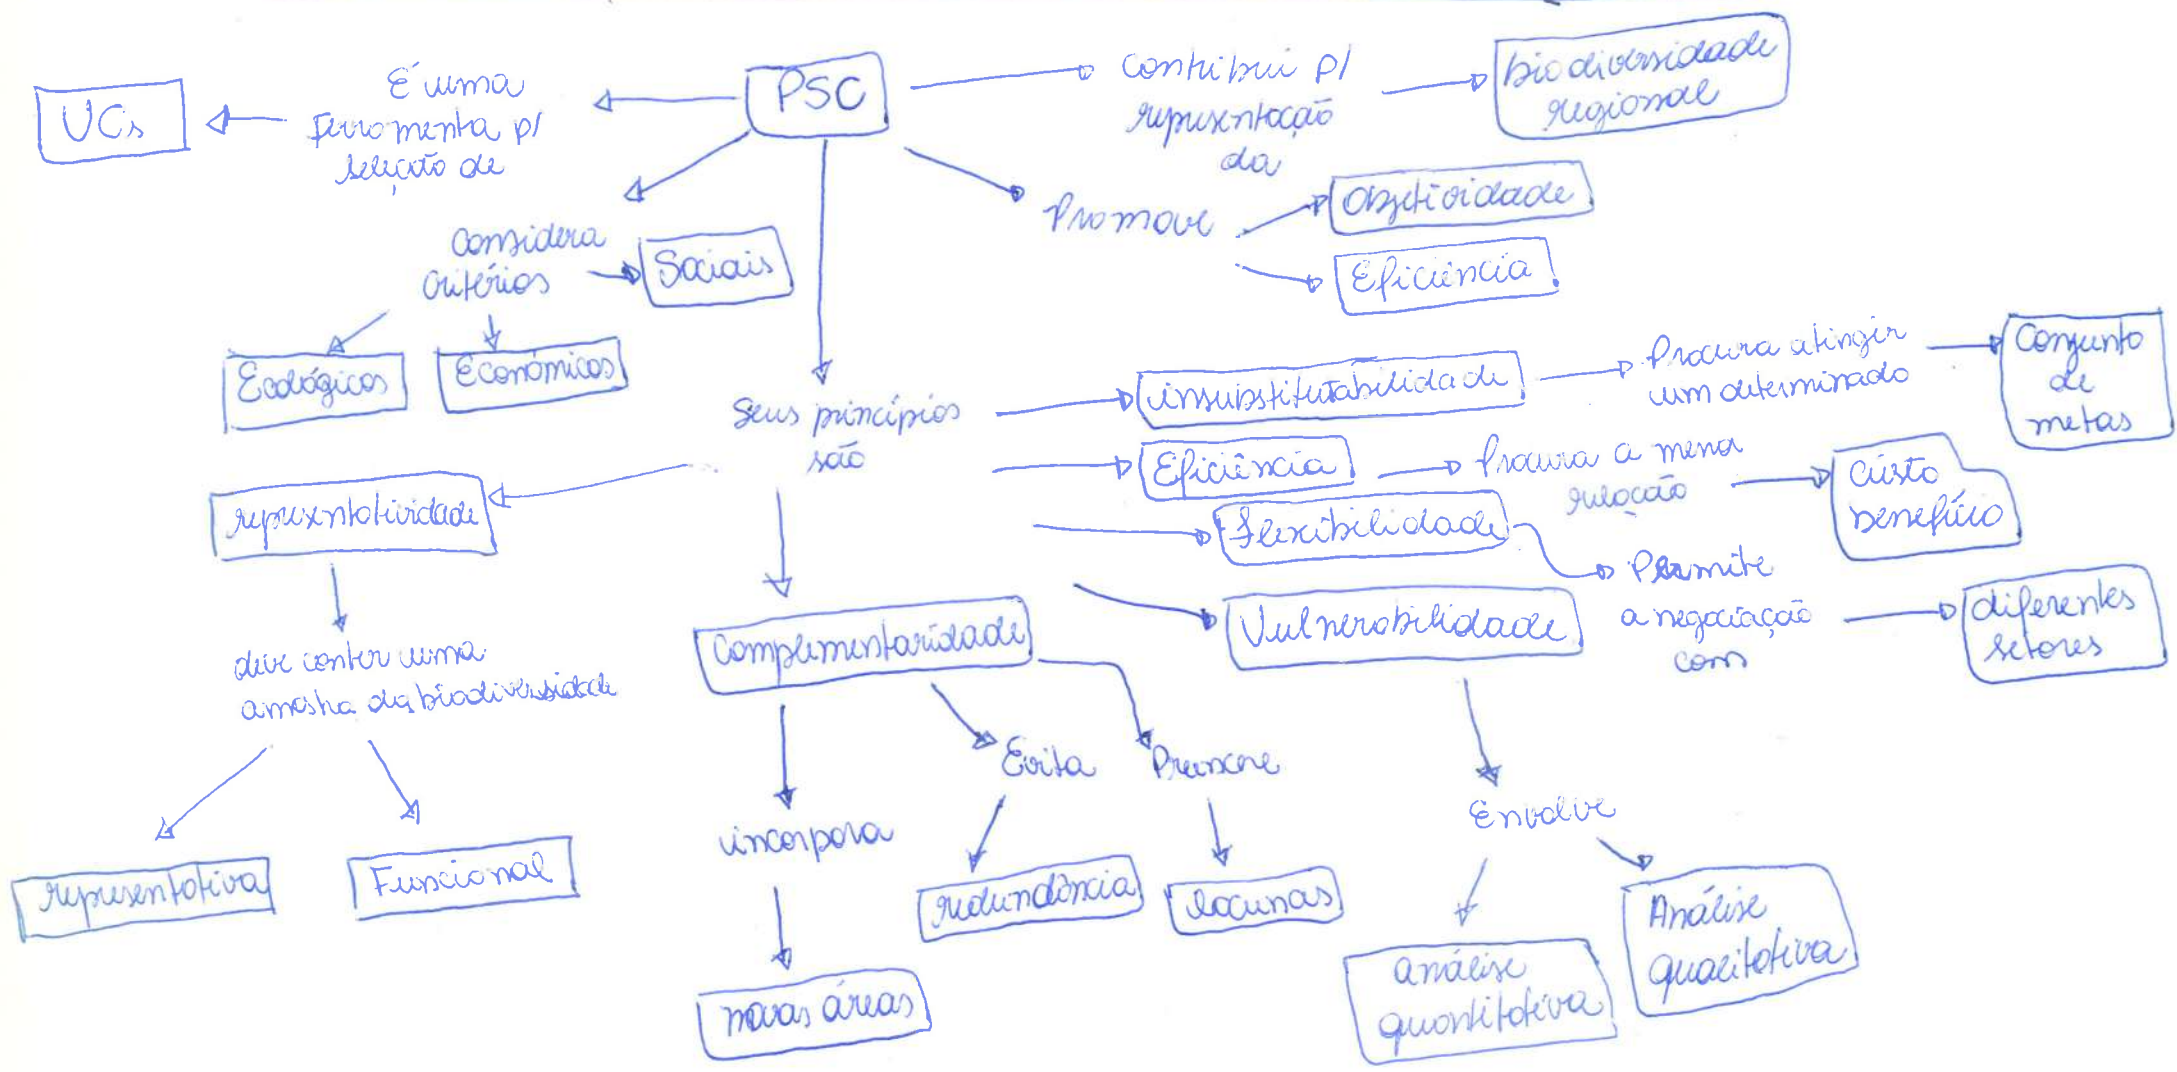 PSC
É uma
Ferramenta p/
seleção de
UCs
Contribui p/
representação
da
biodiversidade
regional
Promove
Objetividade
Eficiência
Considera
Critérios
Sociais
Ecológicos
Econômicos
Seus princípios
são
insubstitutabilidade
Procura atingir
um determinado
Conjunto
de
metas
Eficiência
Procura a menor
relação
custo
benefício
Flexibilidade
Permite
a negociação
com
diferentes
setores
Vulnerabilidade
Envolve
análise
quantitativa
Análise
qualitativa
representatividade
deve conter uma
amostra da biodiversidade
representativa
Funcional
Complementaridade
incorpora
novas áreas
Evita
redundância
Preenche
lacunas